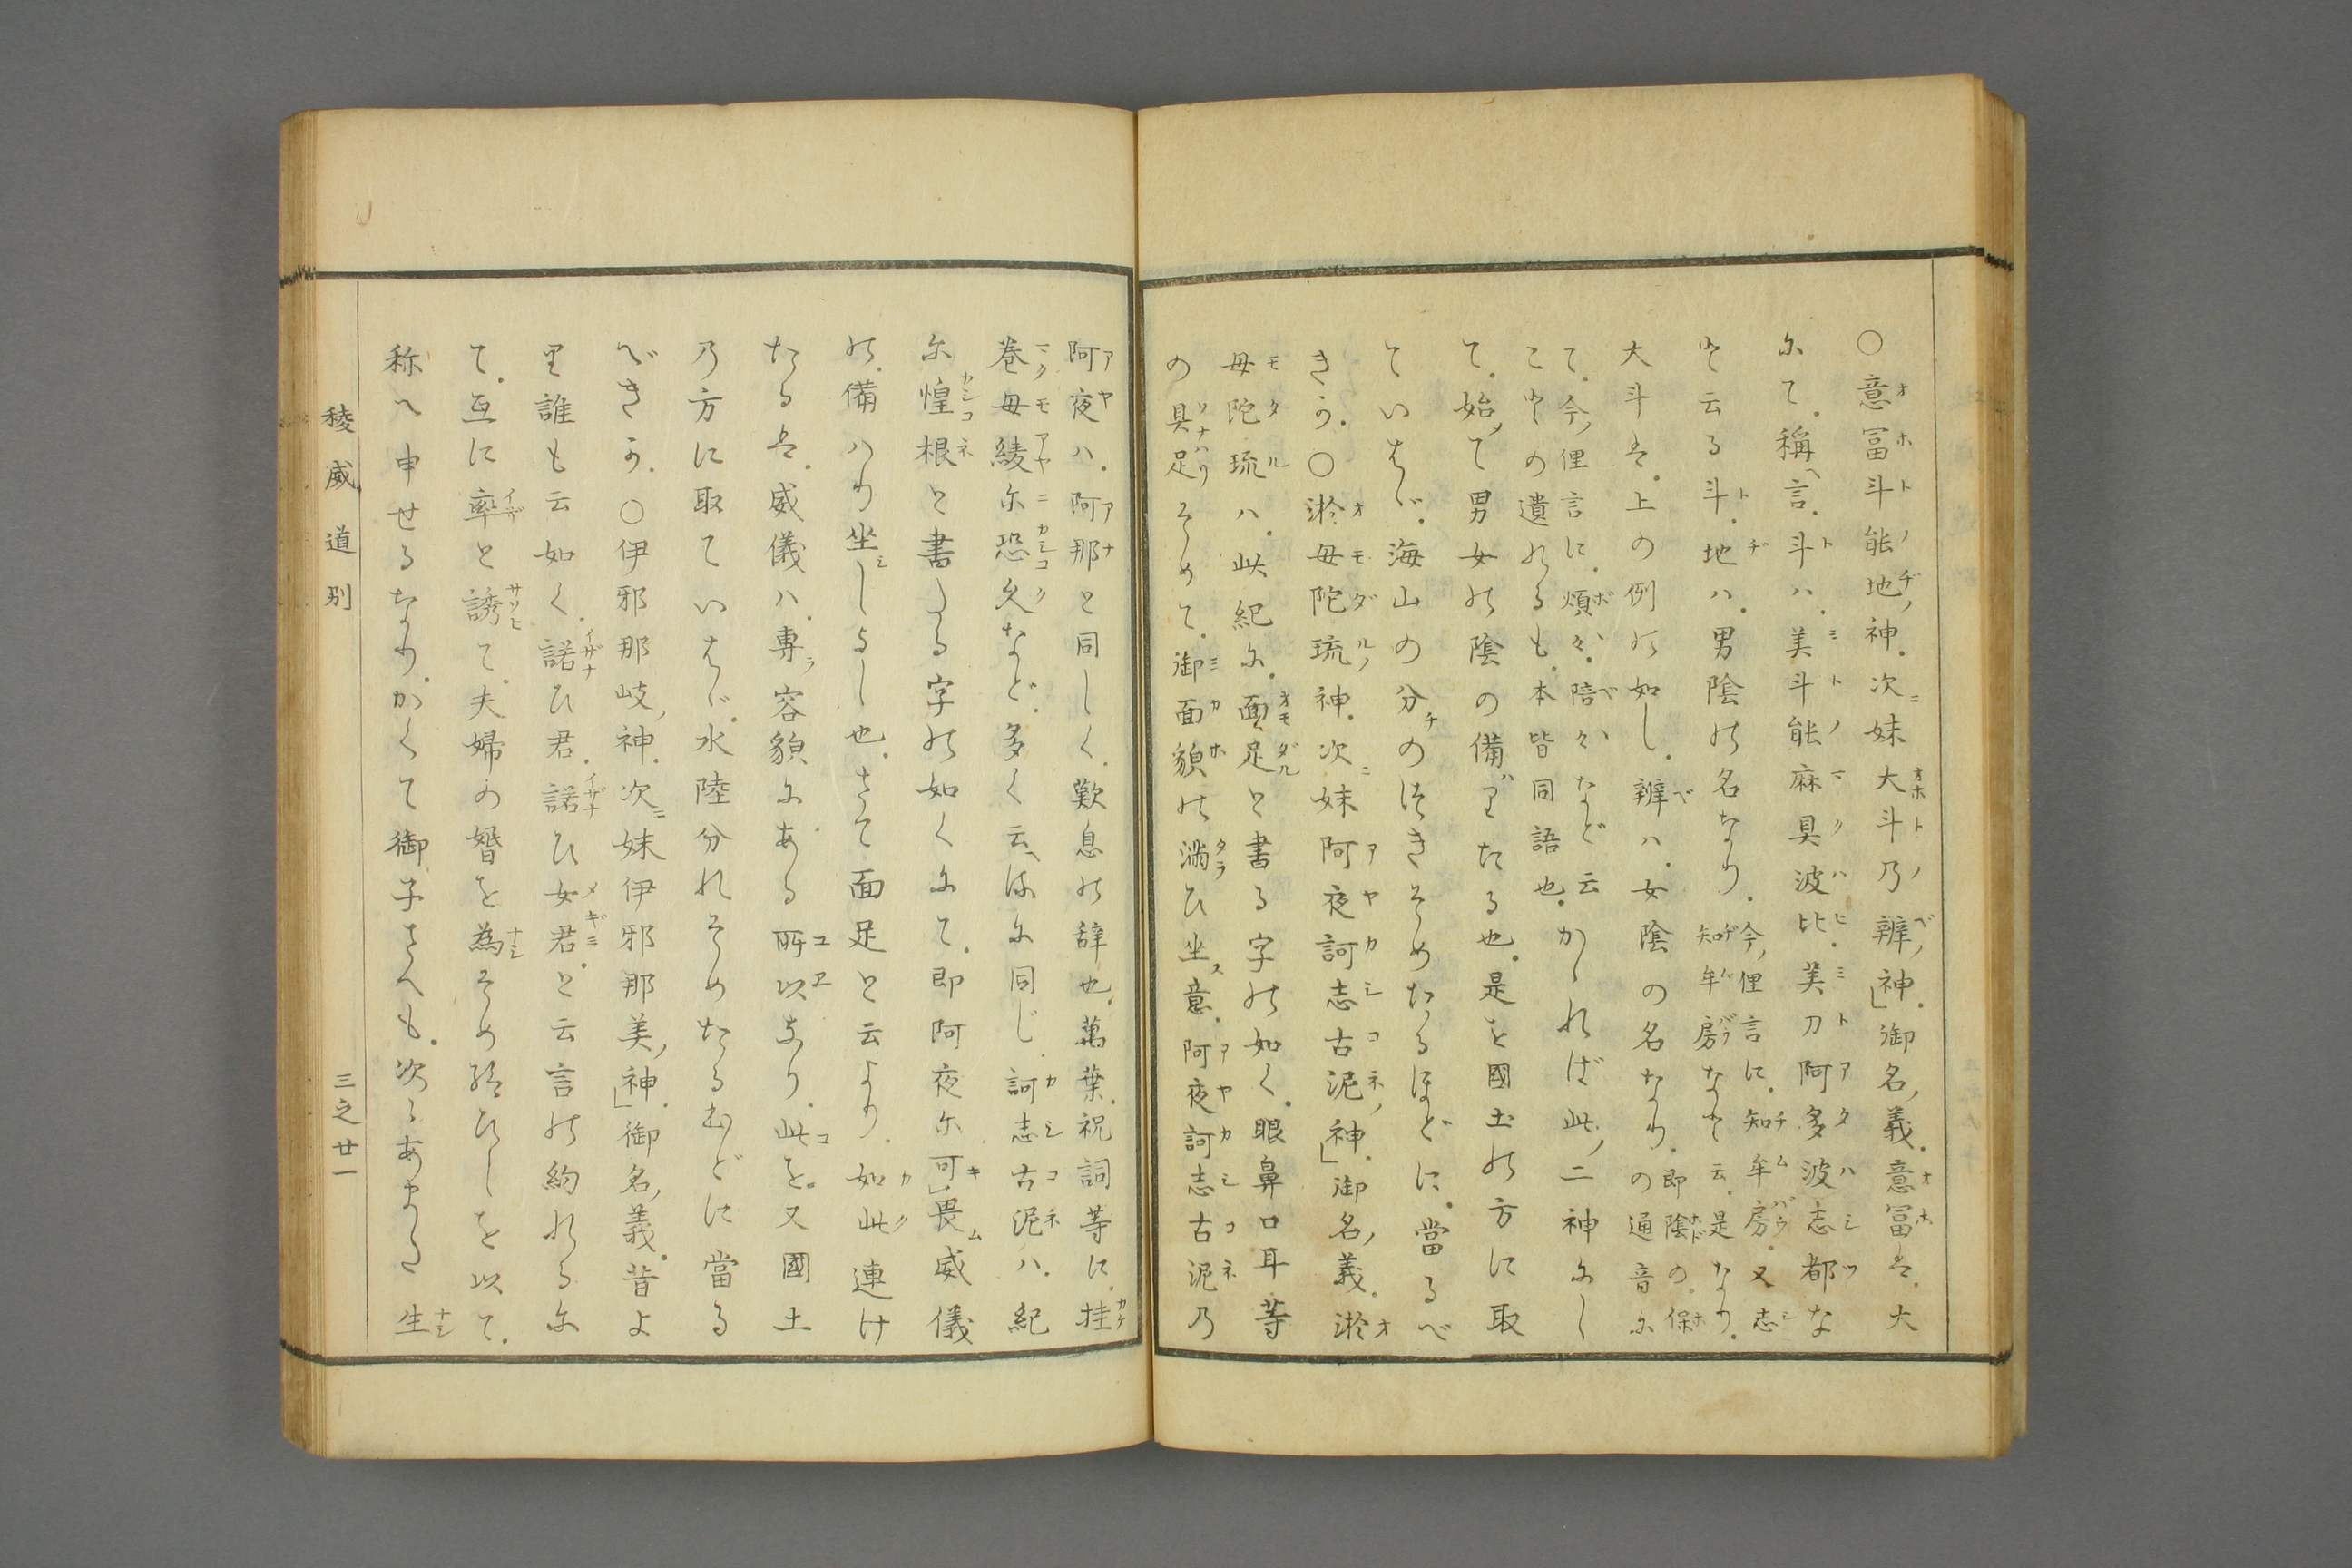 ○意冨斗能地神。次妹大斗乃辨神」御名義。意冨は。大
にて。稱言。斗ハ。美斗能麻具波比。美刀阿多波志都な
ど云る斗。地ハ。男陰の名なり。今俚言に。知牟房。又志
知牟房など云是なり。
大斗は。上の例の如し。辨ハ。女陰の名なり。即陰の保
の通音に
て。今俚言に。煩々。陪々など云
ことの遺れるも。本皆同語也。かゝれば此二神にし
て。始て男女の陰の備りたる也。是を國土の方に取
ていはゞ。海山の分のほきそめたるほどに。當るべ
きか。○淤母陀琉神。次妹阿夜訶志古泥神」御名義。淤
母陀琉ハ。此紀に。面足と書る字の如く。眼鼻口耳等
の具足そめて。御面貌の滿ひ坐意。阿夜訶志古泥乃
阿夜ハ。阿那と同しく。歎息の辞也。萬葉。祝詞等に。挂
巻母綾尓恐久など。多く云へるに同じ。訶志古泥ハ。紀
に惶根と書る字の如くにて。即阿夜尓可」畏威儀
の。備ハり坐しよし也。さて面足と云より。如此連け
たるは。威儀ハ。専容貌にある所以なり。此を。又國土
乃方に取ていはゞ。水陸分れそめたるほどに當る
べきか。○伊邪那岐神。次妹伊邪那美神」御名義。昔よ
り誰も云如く。諾ひ君。諾ひ女君。と云言の約れるに
て。互に率と誘て。夫婦の婚を為そめ給ひしを以て。
称へ申せるなり。かくて御子さへも。次々あまた生
稜威道別
三之廿一